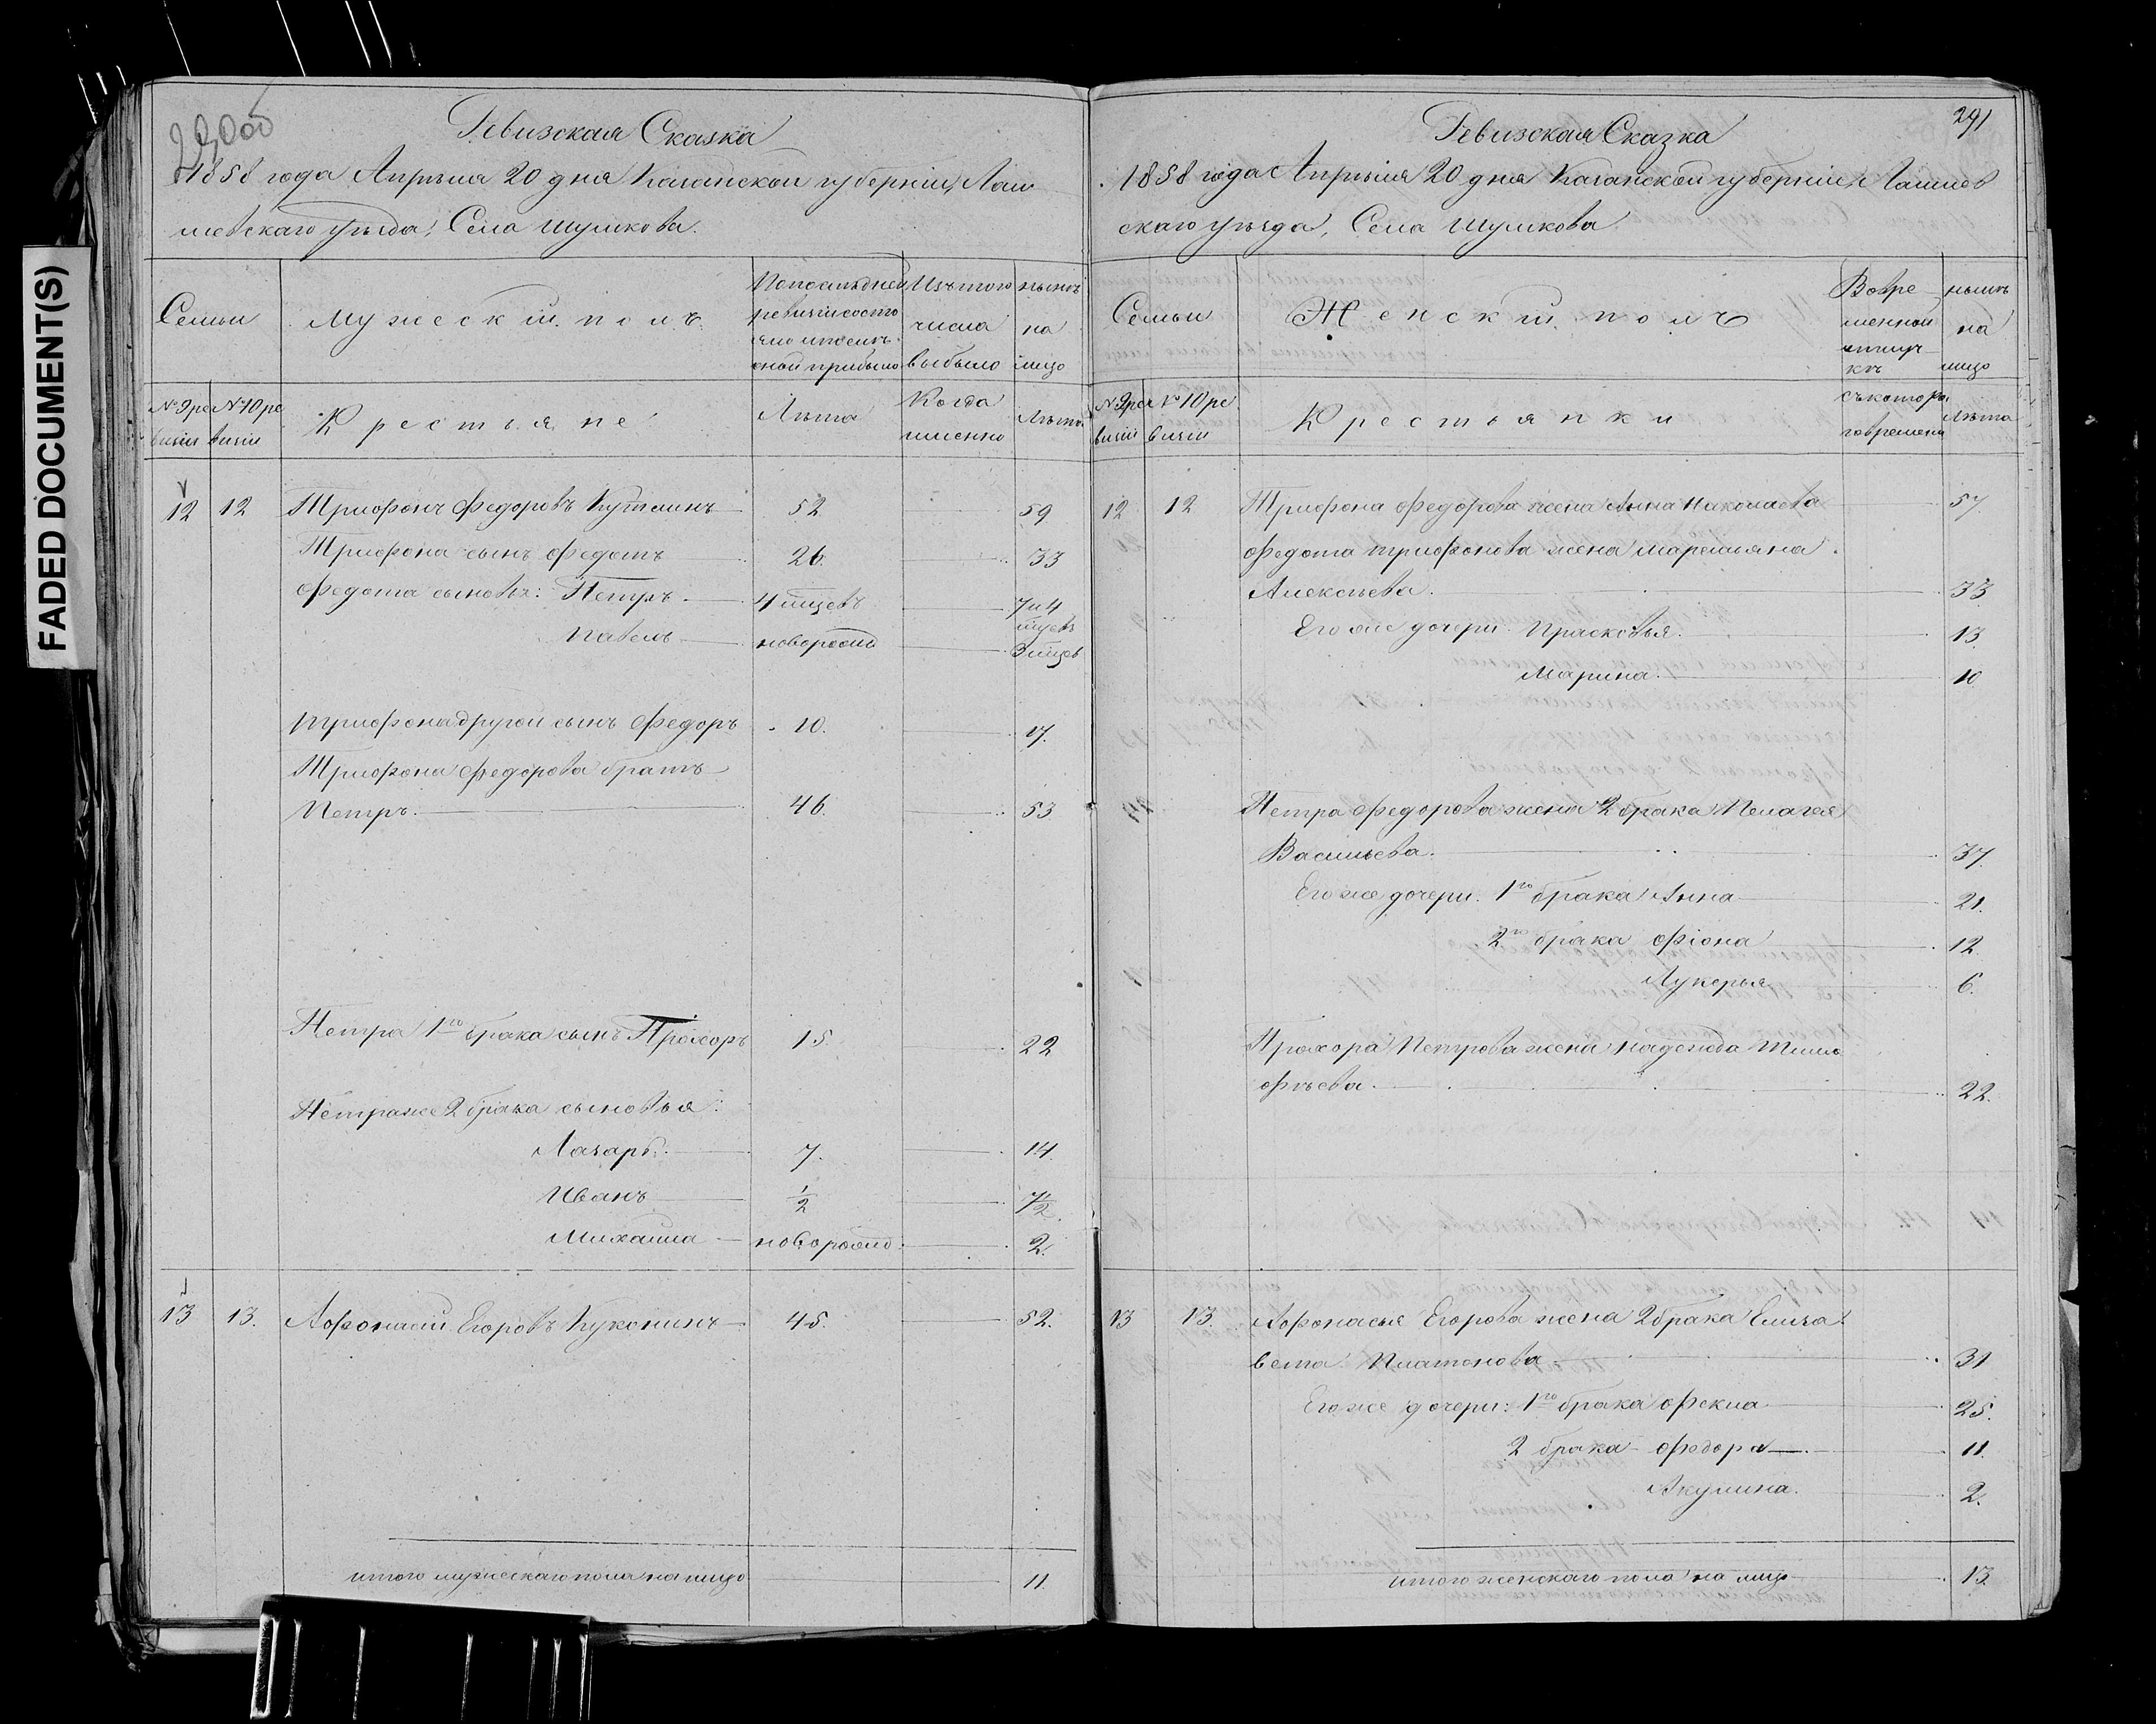 FADED DOCUMENT(S)
20,000
Ревизская Сказка
1858 года Апрѣля 20 дня Казанской губерніи, Лаи
шевскаго уѣзда, Села Шумкова.
Семьи
Мужескій полъ
По послѣдней
ревизіи состо
яло и послѣ
оной прибыло
Изъ того
числа
выбыло
нынѣ
на
лицо
№ 9 ре
визіи
№ 10 ре
визіи
Крестьяне
Лѣта
Когда
именно
Лѣта
12 12 Трифонъ Федоровъ 52 59
Трифона сынъ Федотъ 26. 33
Федота сыновья: Петръ 4 мцевъ 7 и 4
мцевъ
Павелъ новорожд 3 мцев
Трифона другой сынъ Федоръ 10. 17.
Трифона Федорова братъ
Петръ. 46. 53
Петра 1го брака сынъ Прохоръ 15. 22
Петра же 2 брака сыновья:
Лазарь. 7. 14.
Иванъ 1/2 7 1/2
Михаила новорожд. 2.
13 13. Афонасій Егоровъ Куконинъ 45. 52.
итого мужескаго пола на лицо 11
291
Ревизская Сказка
1858 года Апрѣля 20 дня Казанской губерніи, Лаишев
скаго уѣзда, Села Шумкова
Семьи
Женскій полъ
Во вре
менной
отлуч
кѣ
нынѣ
на
лицо
№ 9 ре
визіи
№ 10 ре
визіи
Крестьянки
съ котора
го времени
Лѣта
12 12 Трифона Федорова жена Анна Николаева 57.
Федота Трифонова жена Маремьяна
Алексѣева. 33.
Его же дочери Прасковья. 13.
Марина. 10
Петра Федорова жена 2 брака Пелагея
Васильева. 37.
Его же дочери. 1го брака Анна 21.
2го брака Фіона 12.
Лукерья 6.
Прохора Петрова жена Надежда Тимо
фѣева. 22.
13 13. Афонасья Егорова жена 2 брака Елиза
вета Платонова 31
Его же дочери: 1го брака Фекла 25.
2 брака Федора 11.
Акулина. 2.
итого женскаго пола на лицо 13.